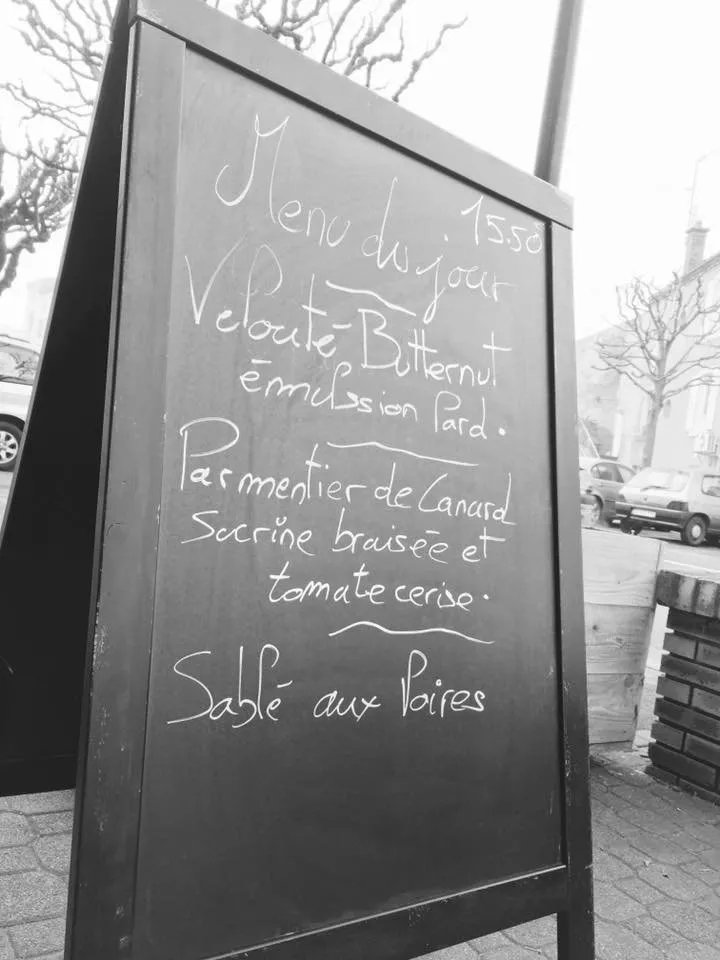 Menu du jour 15.50
Velouté Butternut
émulssion Lard.
Parmentier de Canard
Sucrine braisée et
tomate cerise.
Sablé aux Poires